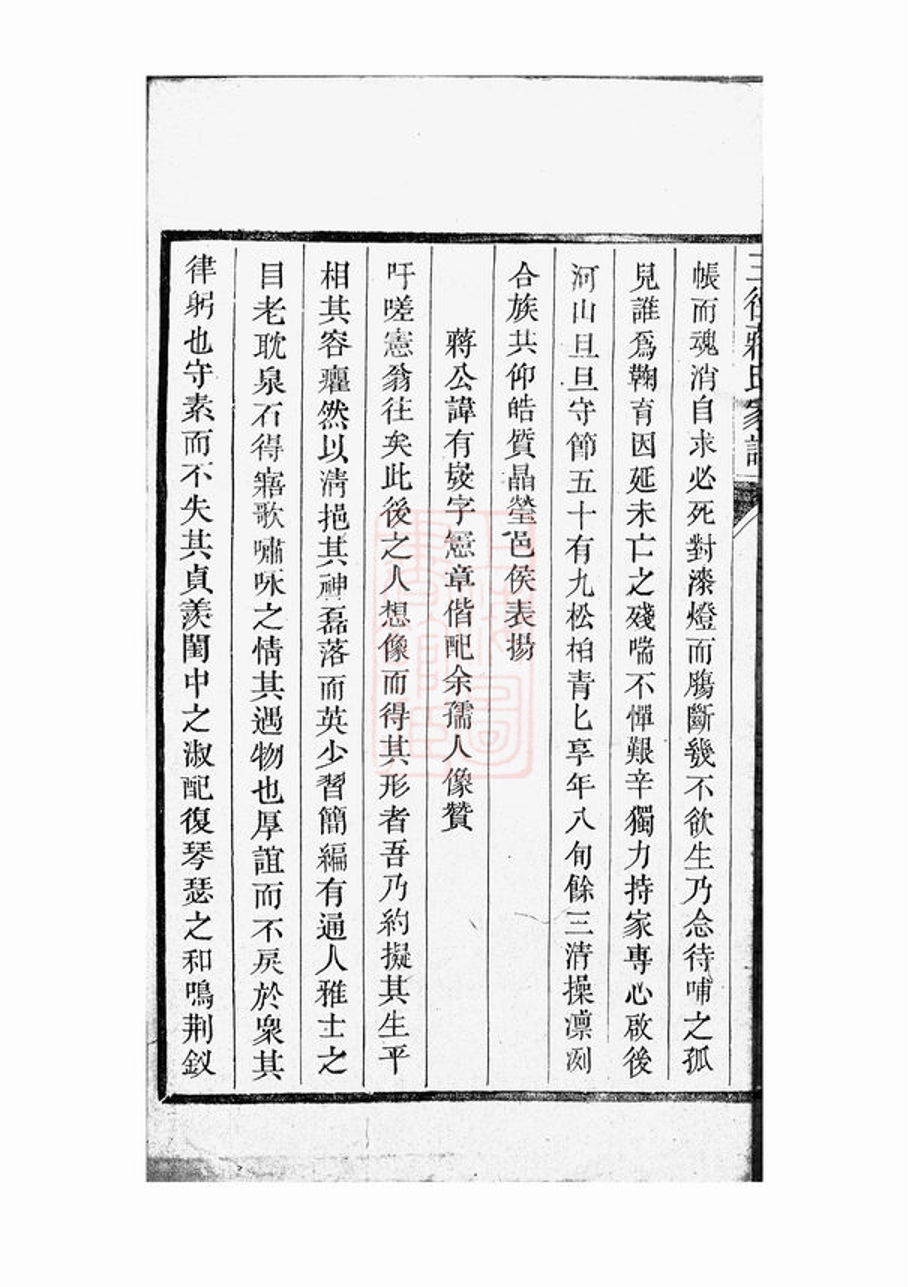 三徑蔣氏家譜
帳而魂消自求必死對漆燈而膓斷幾不欲生乃念待哺之孤
兒誰爲鞠育因延未亡之殘喘不憚艱辛獨力持家專心啟後
河山旦旦守節五十有九松柏青匕享年八旬餘三清操凛冽
合族共仰皓質晶瑩邑侯表揚
蔣公諱有燮字憲章偕配余孺人像贊
吁嗟憲翁往矣此後之人想像而得其形者吾乃約擬其生平
相其容癯然以清挹其神磊落而英少習簡編有通人雅士之
目老耽泉石得寤歌嘯咏之情其遇物也厚誼而不戾於衆其
律躬也守素而不失其貞羨閨中之淑配復琴瑟之和鳴荆釵